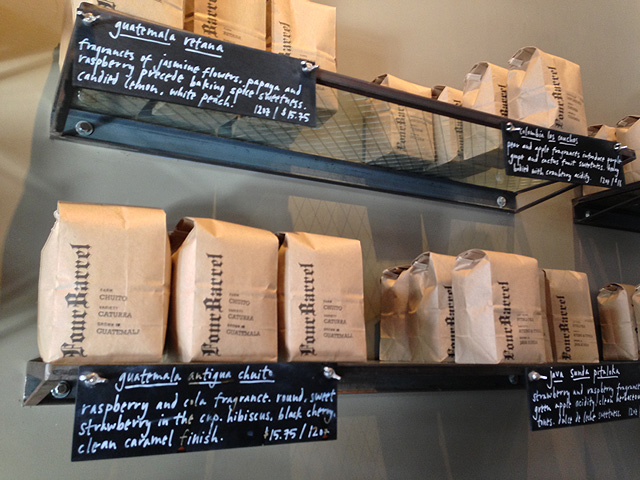 guatemala retana
fragrances of jasmine flowers, papaya and
raspberry precede baking spice sweetness.
candied lemon, white peach.
12oz / $15.75
colombia los
pear and apple fragrances introduce purple
grape and cactus fruit sweetness.
with cranberry acidity.
Four Barrel
FARM
CHUITO
VARIETY
CATURRA
GROWN IN
GUATEMALA
Four Barrel
FARM
CHUITO
VARIETY
CATURRA
GROWN IN
GUATEMALA
Four Barrel
FARM
CHUITO
VARIETY
CATURRA
GROWN IN
GUATEMALA
Four Barrel
Four Barrel
guatemala antigua chuito
raspberry and cola fragrance. round, sweet
strawberry in the cup. hibiscus, black cherry,
clean caramel finish.
$15.75 / 12oz
java sunda pitaloka
strawberry and raspberry fragrance
green apple acidity / clean herbaceous
tones. dulce de leche sweetness. 12oz